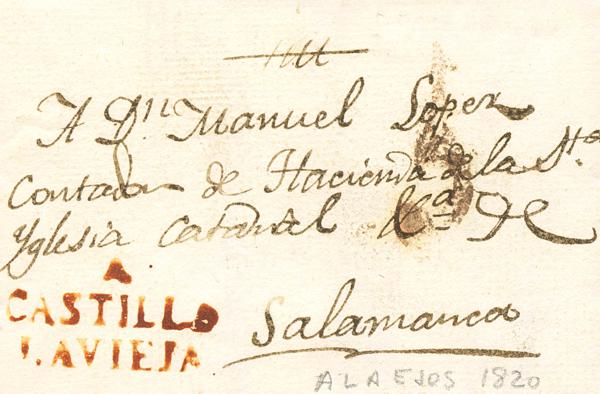 A Dn. Manuel Lopez
Contador de Hacienda de la Sta
Yglesia Catedral &a. de
Salamanca
A
CASTILLO
LAVIEJA
ALAEJOS 1820